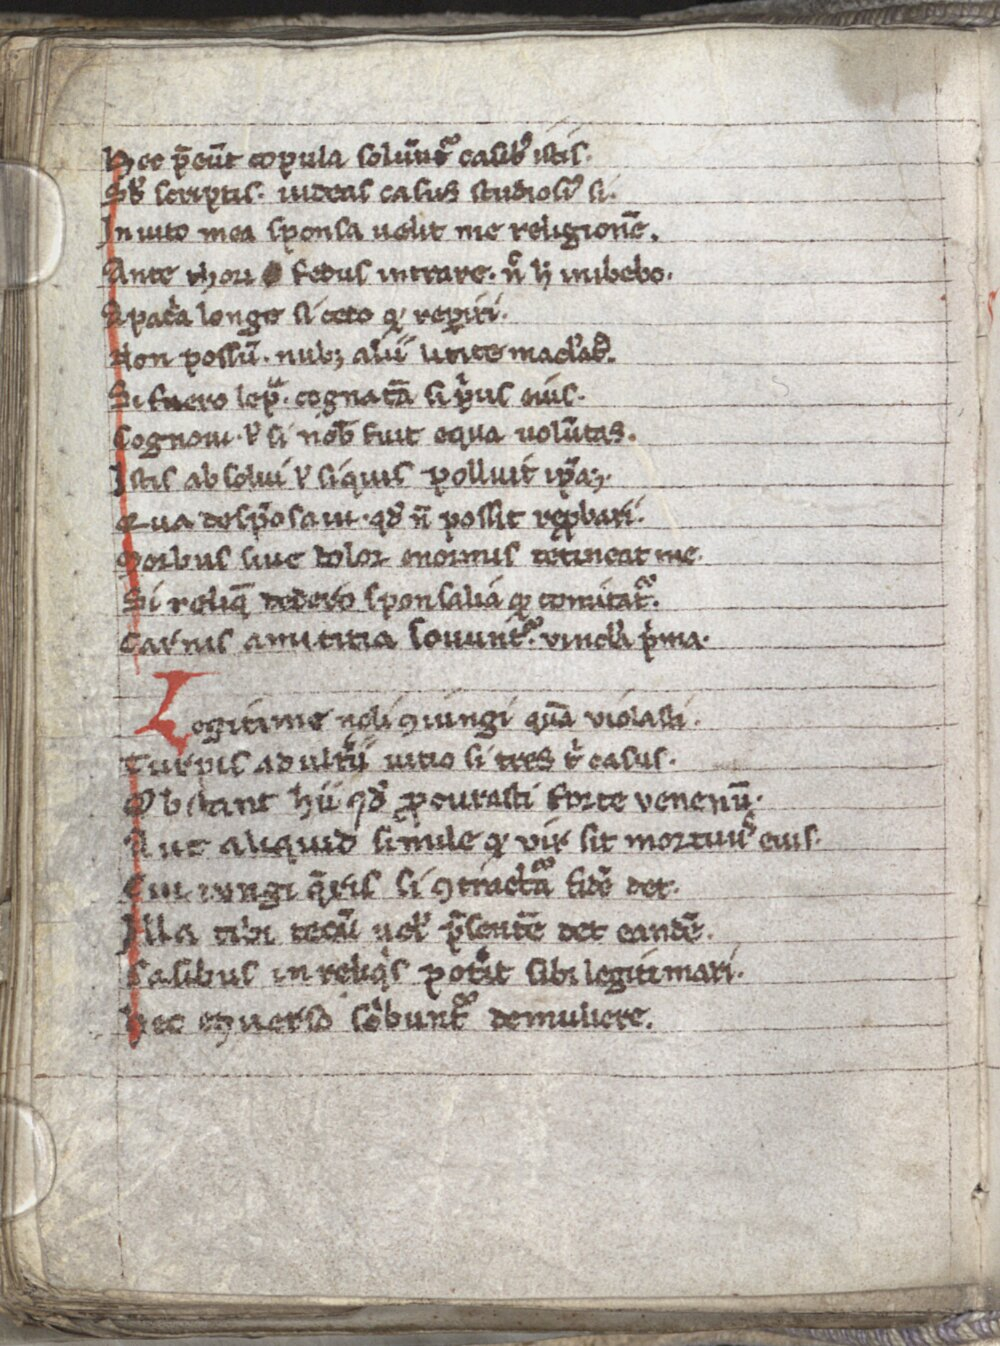 Hec p̄eūt copula solūnt᷑ casib᷒ istis.
Sb̄ scriptis. uideas casus studiosꝰ si.
Inuito mea sponsa uelit me religionē.
Ante thori fedus intrare. nͦ ħ inibebo.
longe si ceto qͥ reꝑiri.
Non possū. nubꝫ alii
Si fuero lep̄. cognatā si pͥus eius.
Cognoui. ł si nob̄ fuit equa volūtas.
Istis absolui ł siquis polluit ip̄aꝫ.
Qua desp̄osaui. qd̓ n̄ possit rep̱bari.
Morbus siue dolor enormis retineat me.
Si reliq̄ dedero sponsalia qͥ comitat᷑.
Carnis amititia souunt᷑ vincla pͥma.
Legitime noli ꝯiungi quā violasti.
Turpis adulteͥii uitio si tres tͥ casus.
Obstant hii qd̓ ꝓcurasti forte venenū.
Aut aliquid simile qͥ vir sit mortuus eius.
Cui iungi q̄ris si ꝯtractā fidē det.
Illa tibi tecū uel p̄sentē det eandē.
Casibus in reliqͥs potĭt sibi legitimari.
Hec eꝯuerso sc̓bunt᷑ de muliere.